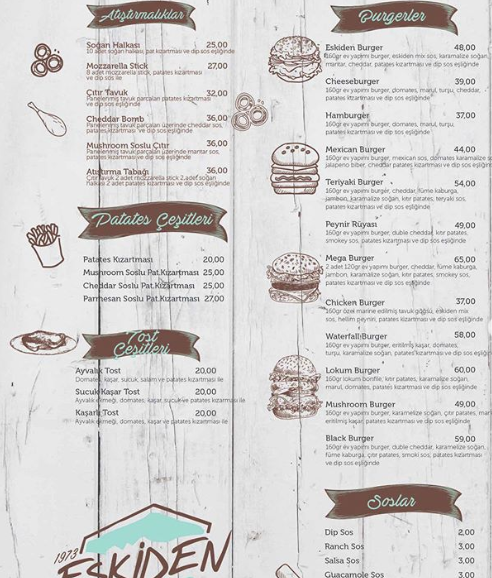 Atıştırmalıklar
Soğan Halkası 25,00
10 adet soğan halkası, pat kızartması ve dip sos eşliğinde
Mozzarella Stick 27,00
8 adet mozzarella stick, patates kızartması
ve dip sos ile
Çıtır Tavuk 32,00
Panelenmiş tavuk parçaları patates kızartması
ve dip sos eşliğinde
Cheddar Bomb 36,00
Panelenmiş tavuk parçaları üzerinde cheddar sos,
patates kızartması ve dip sos eşliğinde
Mushroom Soslu Çıtır 36,00
Panelenmiş tavuk parçaları üzerinde mantar sos,
patates kızartması ve dip sos eşliğinde
Atıştırma Tabağı 36,00
Çıtır tavuk 2 adet mozarella stick 2,adet soğan
halkası 2 adet patates kızartması ve dip sos eşliğinde
Patates Çeşitleri
Patates Kızartması 20,00
Mushroom Soslu Pat.Kızartması 25,00
Cheddar Soslu Pat.Kızartması 25,00
Parmesan Soslu Patates 27,00
Tost
Çeşitleri
Ayvalık Tost 20,00
Domates, kaşar, sucuk, salam ve patates kızartması ile
Sucuk Kaşar Tost 20,00
Ayvalık ekmeği, domates, kaşar, sucuk ve patates kızartması ile
Kaşarlı Tost 20,00
Ayvalık ekmeği, domates, kaşar ve patates kızartması ile
1973
ESKİDEN
Burgerler
Eskiden Burger 48,00
160gr ev yapımı burger, eskiden mix sos, karamelize soğan,
mantar, cheddar, patates kızartması ve dip sos eşliğinde
Cheeseburger 39,00
160gr ev yapımı burger, domates, marul, turşu, cheddar,
patates kızartması ve dip sos eşliğinde
Hamburger 37,00
160gr ev yapımı burger, domates, marul, turşu,
patates kızartması ve dip sos eşliğinde
Mexican Burger 44,00
160gr ev yapımı burger, mexican sos, domates karamalize so
jalapeno biber, cheddar patates kızartması ve dip sos eşliğinde
Teriyaki Burger 54,00
160gr ev yapımı burger, cheddar, füme kaburga,
jambon, karamalize soğan, kıtır patates, teriyaki sos,
patates kızartması ve dip sos eşliğinde
Peynir Rüyası 49,00
160gr ev yapımı burger, duble cheddar, kıtır patates,
smokey sos, patates kızartması ve dip sos eşliğinde
Mega Burger 65,00
2 adet 120gr ev yapımı burger, cheddar, füme kaburga,
jambon, karamalize soğan, kıtır patates, smokey sos,
patates kızartması ve dip sos eşliğinde
Chicken Burger 37,00
160gr özel marine edilmiş tavuk göğsü, eskiden mix
sos, hellim peyniri, patates kızartması ve dip sos eşliğinde
Waterfall Burger 58,00
160gr ev yapımı burger, eritilmiş kaşar, domates,
turşu, karamalize soğan, patates kızartması ve dip sos eşliğ
Lokum Burger 60,00
160gr lokum bonfile, kıtır patates, karamalize soğan,
marul, domates, patates kızartması ve dip sos eşliğinde
Mushroom Burger 49,00
160gr ev yapımı burger, karamelize soğan, çıtır patates, man
eritilmiş kaşar, patates kızartması ve dip sos eşliğinde
Black Burger 59,00
160gr ev yapımı burger, duble cheddar, karamalize soğan,
füme kaburga, çıtır patates, smoki sos, patates kızartması
ve dip sos eşliğinde
Soslar
Dip Sos 2,00
Ranch Sos 3,00
Salsa Sos 3,00
Guacamole Sos 3,00